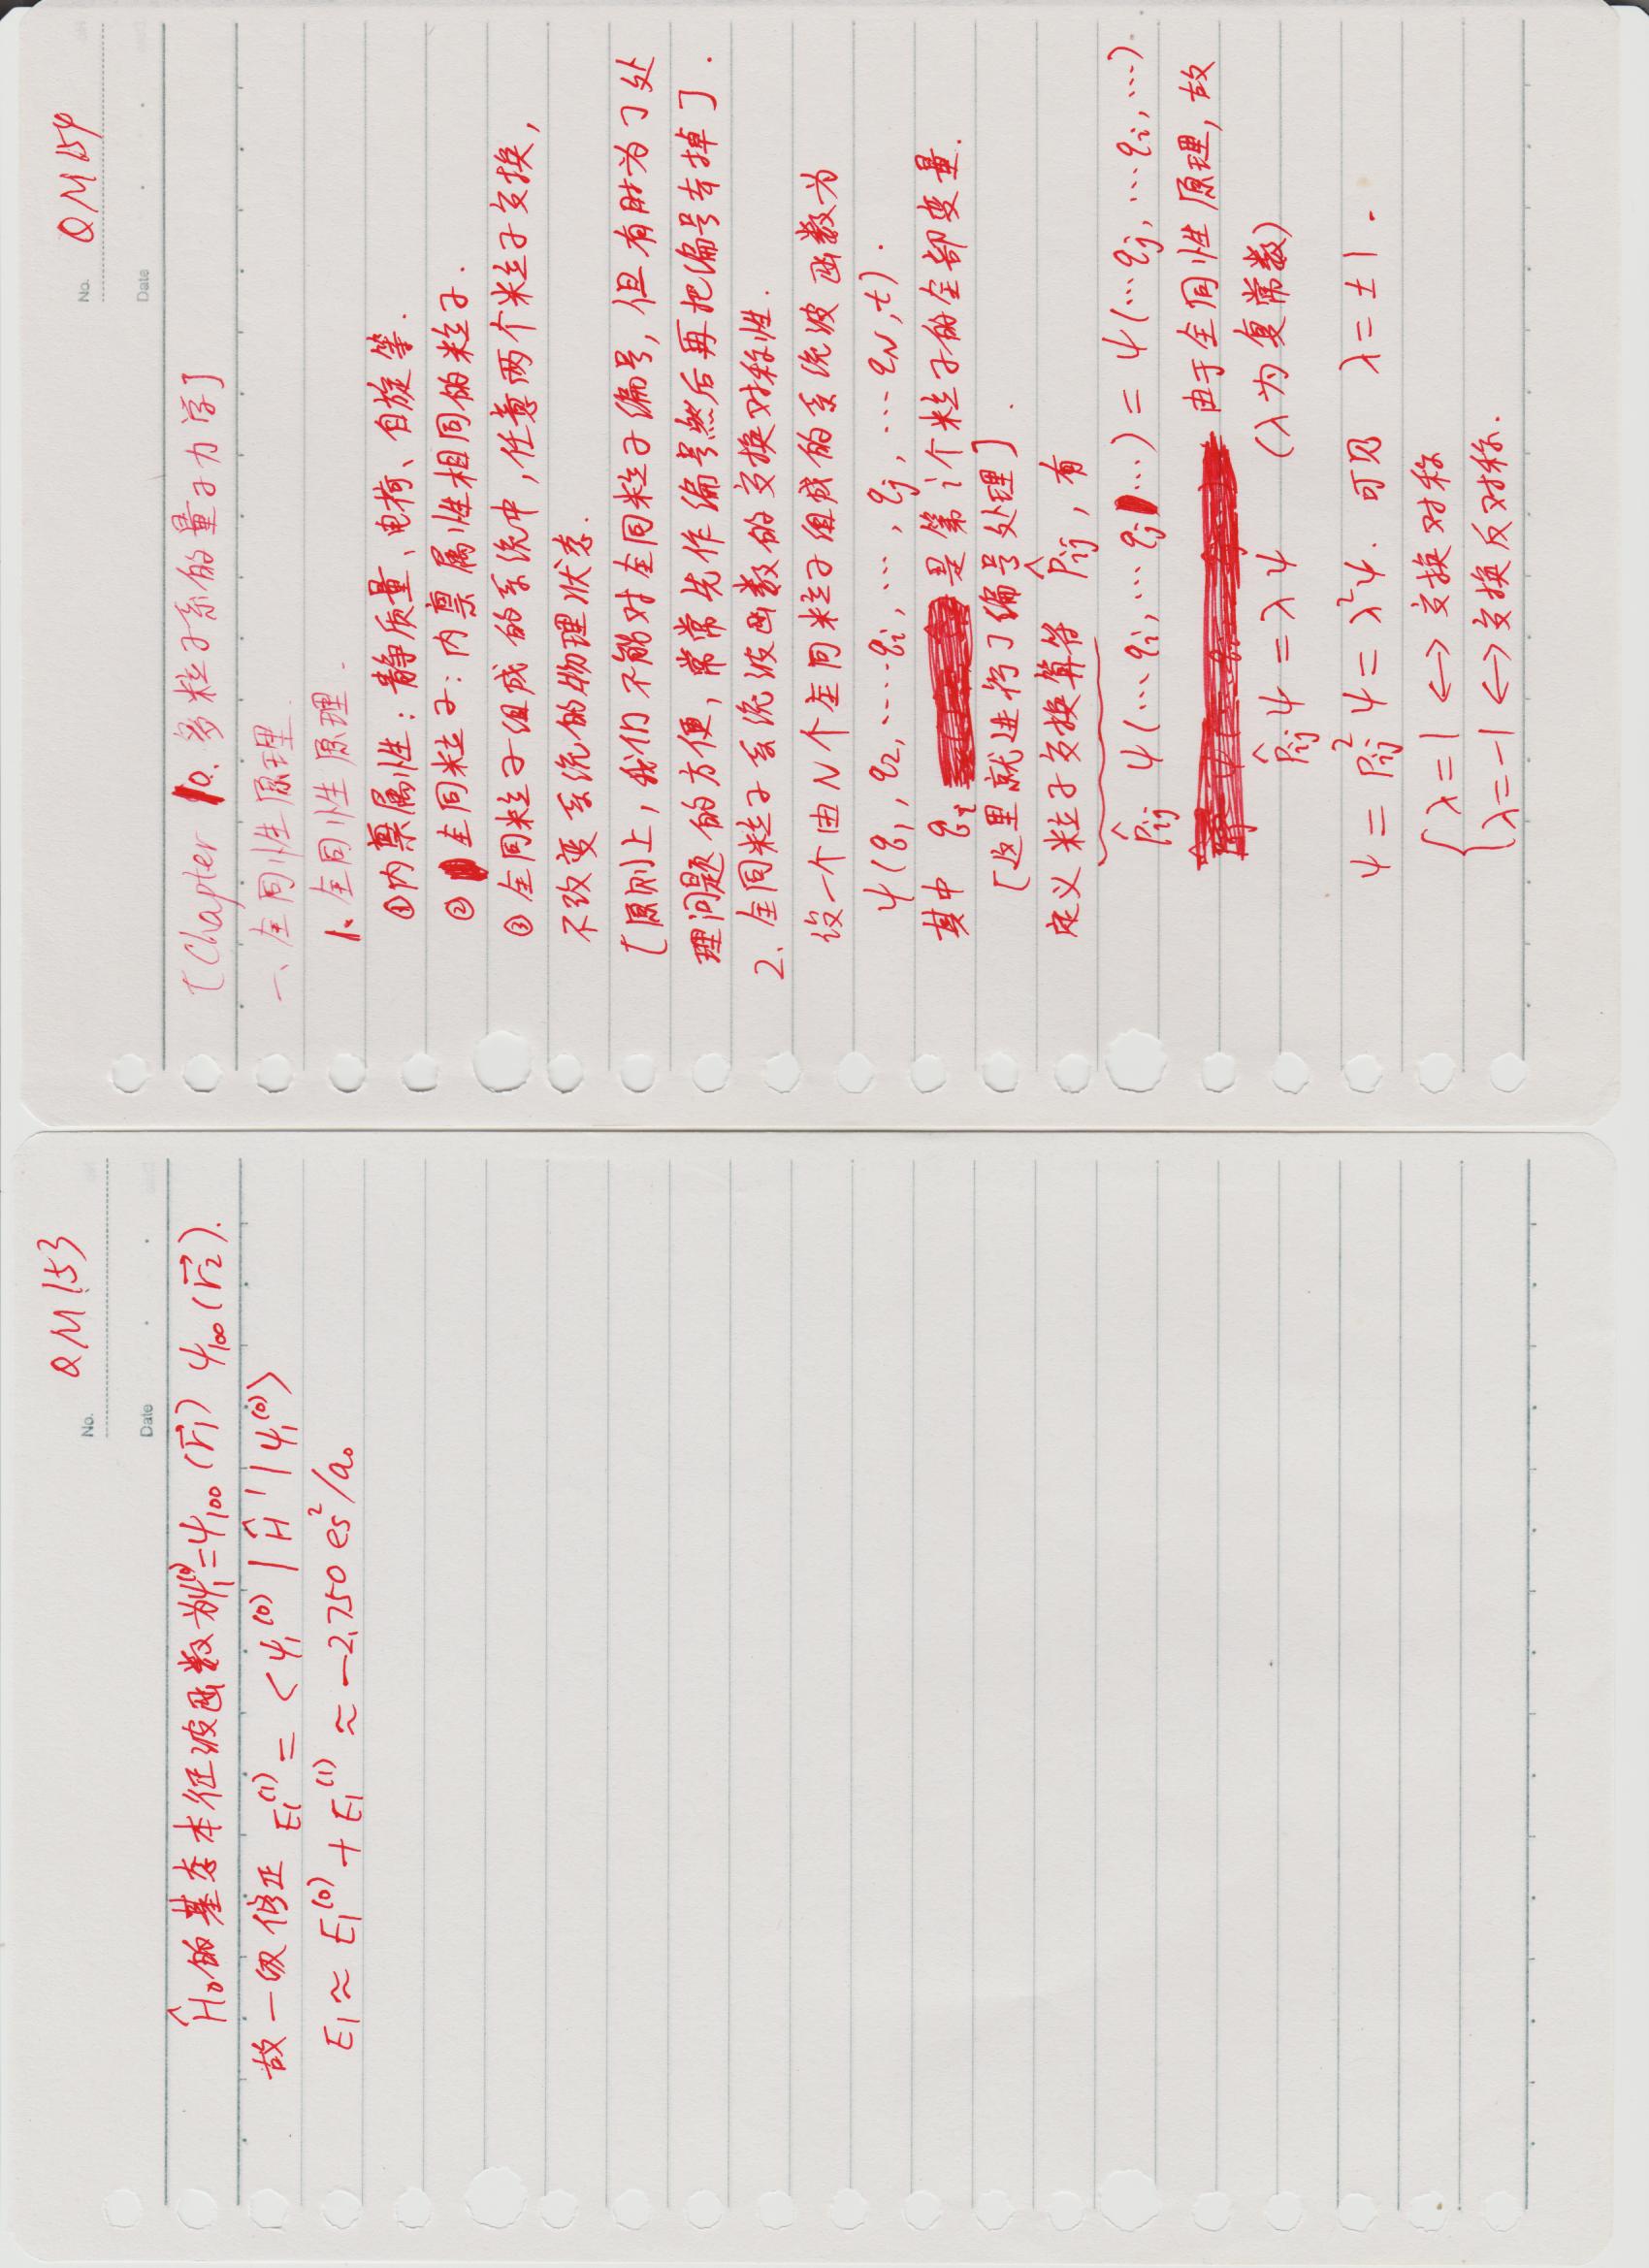 No. QM153
Date
Ĥ₀的基态本征波函数为ψ₁⁽⁰⁾=ψ₁₀₀(r⃗₁) ψ₁₀₀(r⃗₂).
故一级修正 E₁⁽¹⁾ = <ψ₁⁽⁰⁾|Ĥ'|ψ₁⁽⁰⁾>
E₁≈ E₁⁽⁰⁾ + E₁⁽¹⁾ ≈ -2.750 es²/a₀
No. QM154
Date
[Chapter 10. 多粒子系的量子力学]
一、全同性原理.
1. 全同性原理.
①内禀属性: 静质量、电荷、自旋等.
② 全同粒子: 内禀属性相同的粒子.
③ 全同粒子组成的系统中,任意两个粒子交换,
不改变系统的物理状态.
[原则上,我们不能对全同粒子编号,但有时为了处
理问题的方便,常常先作编号然后再把编号去掉].
2. 全同粒子系统波函数的交换对称性.
设一个由N个全同粒子组成的系统波函数为
ψ(q₁, q₂, ····qᵢ, ···, qⱼ, ···q_N, t).
其中 qᵢ 是第i个粒子的全部变量.
[这里就进行了编号处理].
定义粒子交换算符 P̂ᵢⱼ, 有
P̂ᵢⱼ ψ(···qᵢ,···qⱼ···) = ψ(···qⱼ,···qᵢ,···).
由于全同性原理,故
P̂ᵢⱼψ = λψ (λ为复常数)
ψ = Pᵢⱼ²ψ = λ²ψ. 可见 λ=±1.
{λ=1 ↔ 交换对称
λ=-1 ↔ 交换反对称.